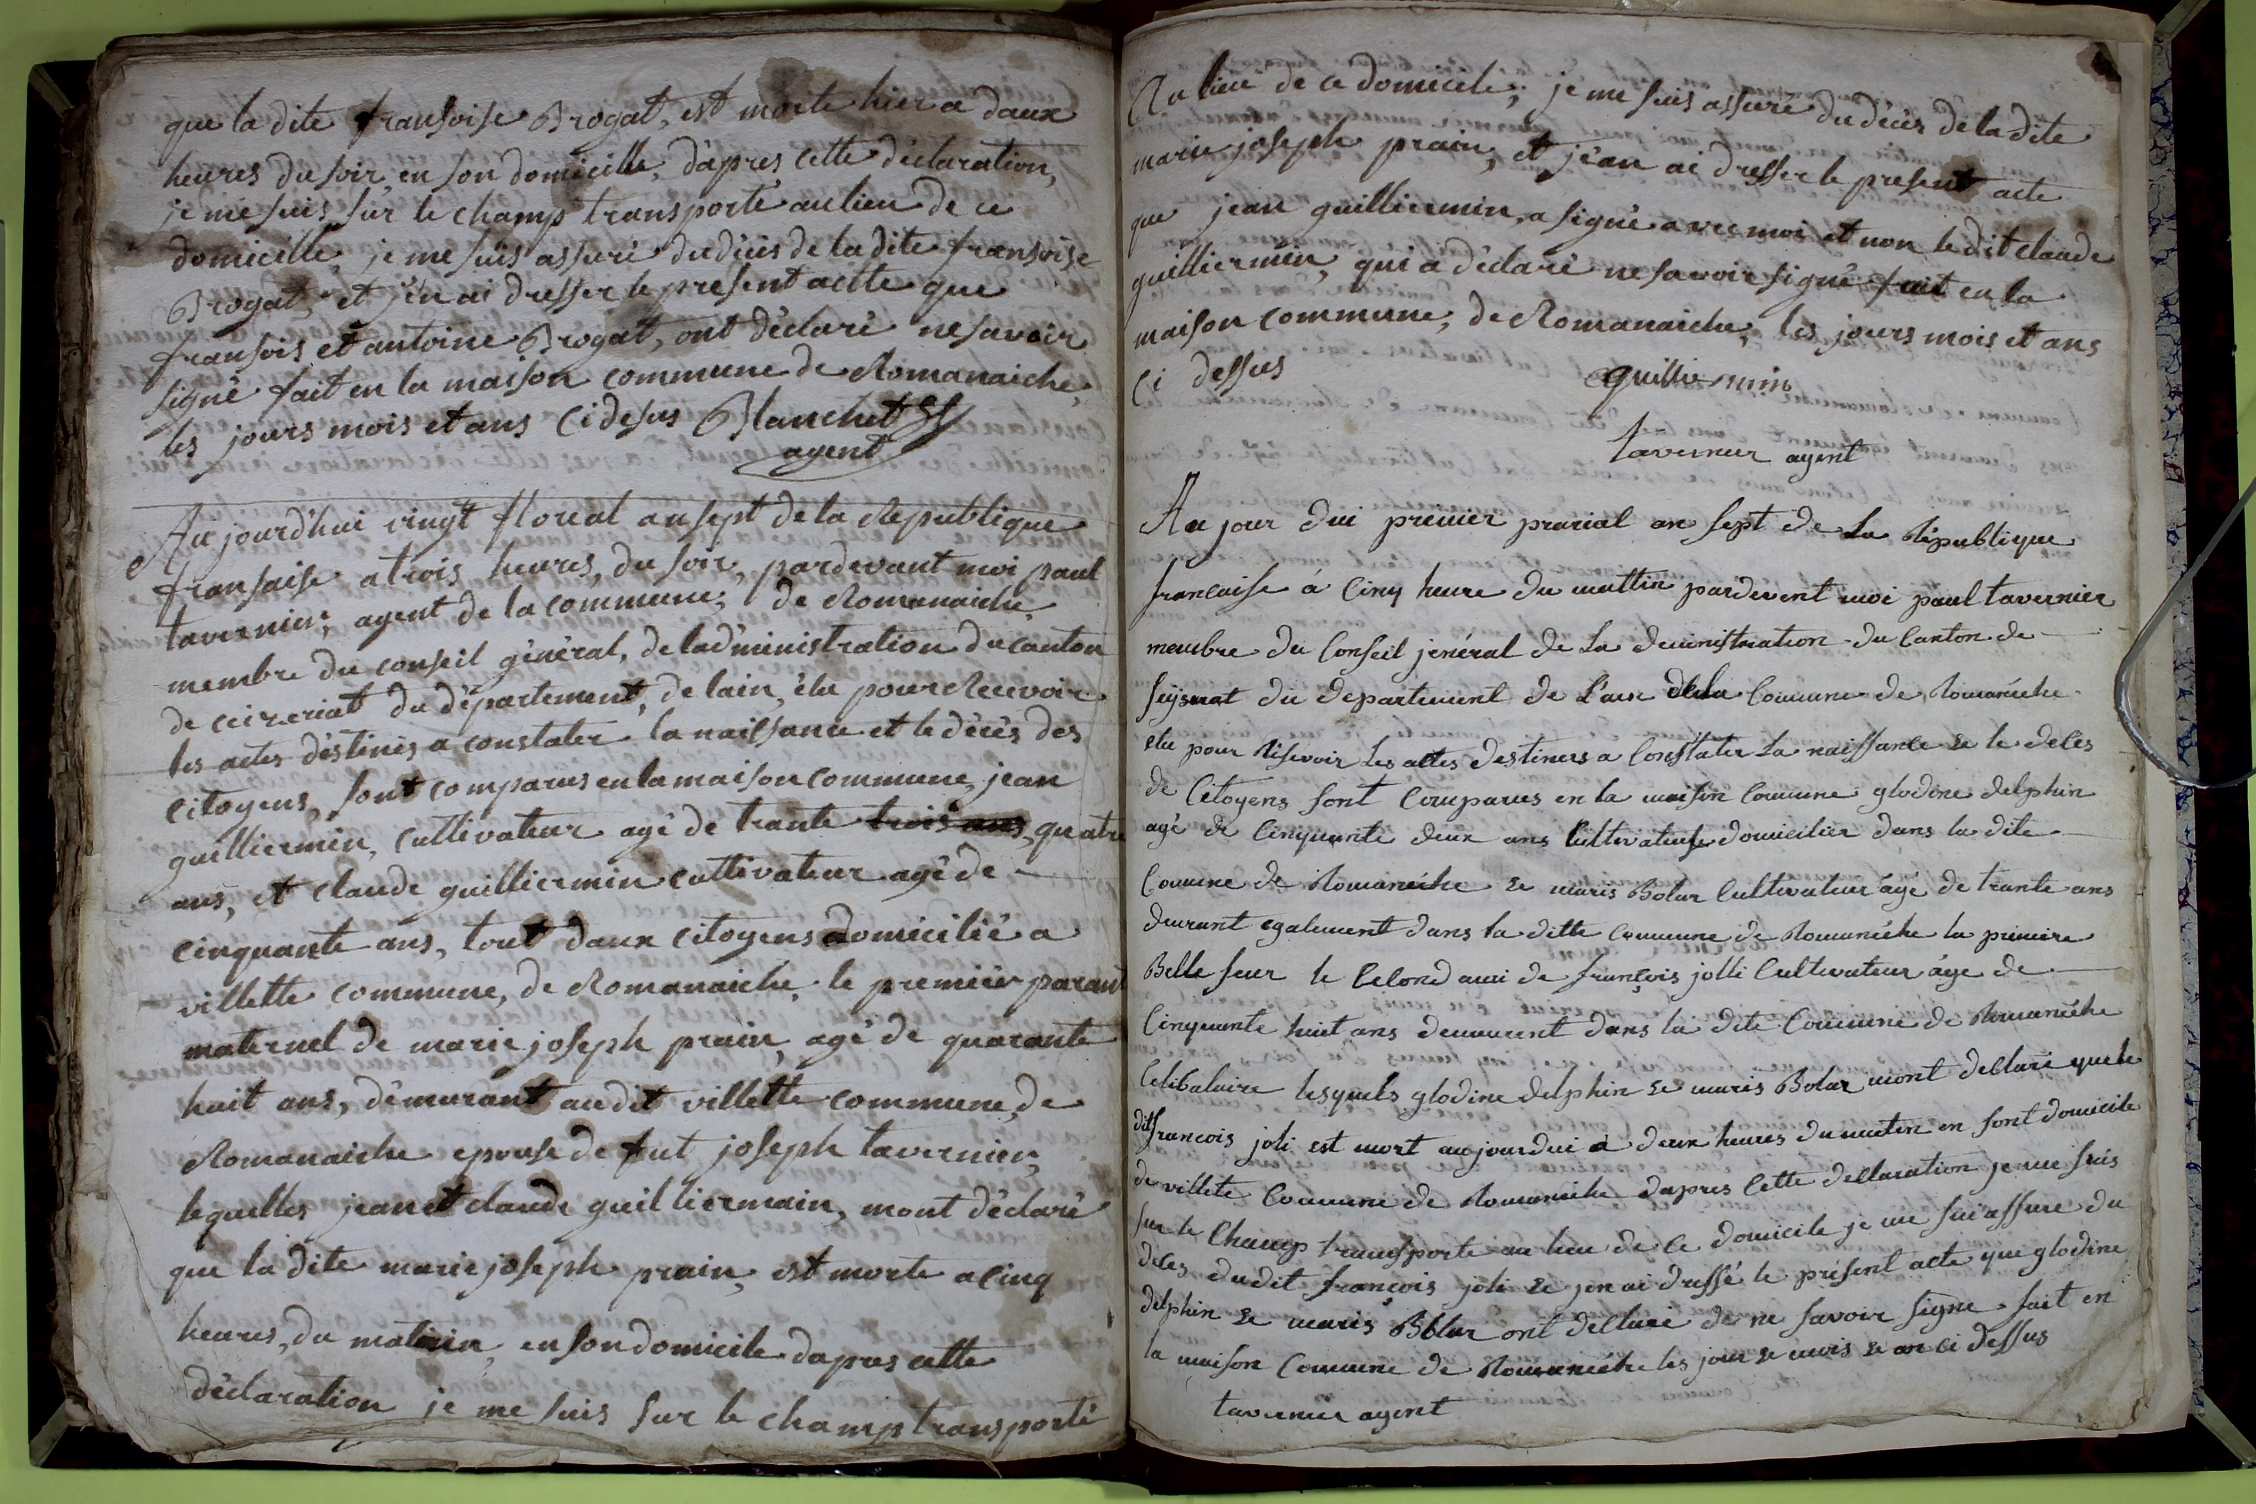 que la dite fransoise Brogat, est morte hier a daux
heures du soir, en son domicille, d'apres cette déclaration,
je me suis sur le champ transporté au lieu de ce
domicille, je me suis assuré du décès de la dite fransoise
Brogat, et j'en ai dresser le present actte que
fransois et antoine Brogat, ont déclaré ne savoir
signé fait en la maison commune de Romanaiche,
les jours mois et ans Ci desus Blanchet
agent
Au jourd'hui vingt floreal an sept de la Republique
fransaise a trois heures, du soir, pardevant moi paul
tavernier, agent de la commune, de Romanaiche
membre du conseil général, de ladministration du canton
de ceizeriat du département, de lain, élu pour Recevoir
les actes destinés a constater la naissance et le décès des
citoyens, sont comparus en la maison commune, jean
guilliermin, cultivateur agé de trante trois ans, quatre
ans, et claude guilliermin cultivateur agé de
cinquante ans, tout daux citoyens domicilié a
villette commune, de Romanaiche, le premiér parant
maternel de marie joseph prain, agé de quarante
huit ans, démurant audit villette commune, de
Romanaiche epouse de fut joseph tavernier,
lequelles jean et claude guilliermain, mont déclaré
que la dite marie joseph prain, est morte a cinq
heures, du matin, en son domicile dapres cette
déclaration je me suis sur le champ transporté
Au lieu de ce domicile, je me suis assuré du décès de la dite
marie joseph prain, et j'ean ai dresser le present acte
que jean guilliermin, a signé avec moi et non le dit claude
guilliermin, qui a déclaré ne savoir signé fait en la
maison commune, de Romanaiche, les jours mois et ans
Ci dessus guilliermin
tavernier agent
Au jour dui premier prarial an sept de La Republique
francaise a Cinq heure du mattin pardevent moi paul tavernier
membre du Conseil jenéral de La deministration du Canton de
seysirat du departement de L'aen dela Commune de Romanéche
elu pour Resevoir les attes destiners a Constater La naissance et le deces
de Citoyens sont Comparus en la maison Commune glodine delphin
agé de Cinquante deux ans Cultivateuse domicilier dans la dite
Commune de Romanéche et maris Bolar Cultivateur agé de trante ans
demurant egalement dans la ditte Commune de Romanéche la premiere
Belle seur le Celond ami de françois jolli Cultivateur âge de
Cinquante huit ans demeurent dans la dite Commune de Romanéche
Celibataire lesquels glodine delphin et maris Bolar mont declare que le
dit francois joli est mort aujourdui a deux heures du matin en sont domicile
de villete Commune de Romanéche dapres Cette declaration je me suis
sur le Champ transporte au lieu de Ce domicile je me sui assure du
deces dudit françois joli et jen ai dressé le présent acte que glodine
delphin et maris Bolar ont declaré de ne savoir signe fait en
la maison Commune de Romanéche les jour et mois et an ci dessus
tavernier agent